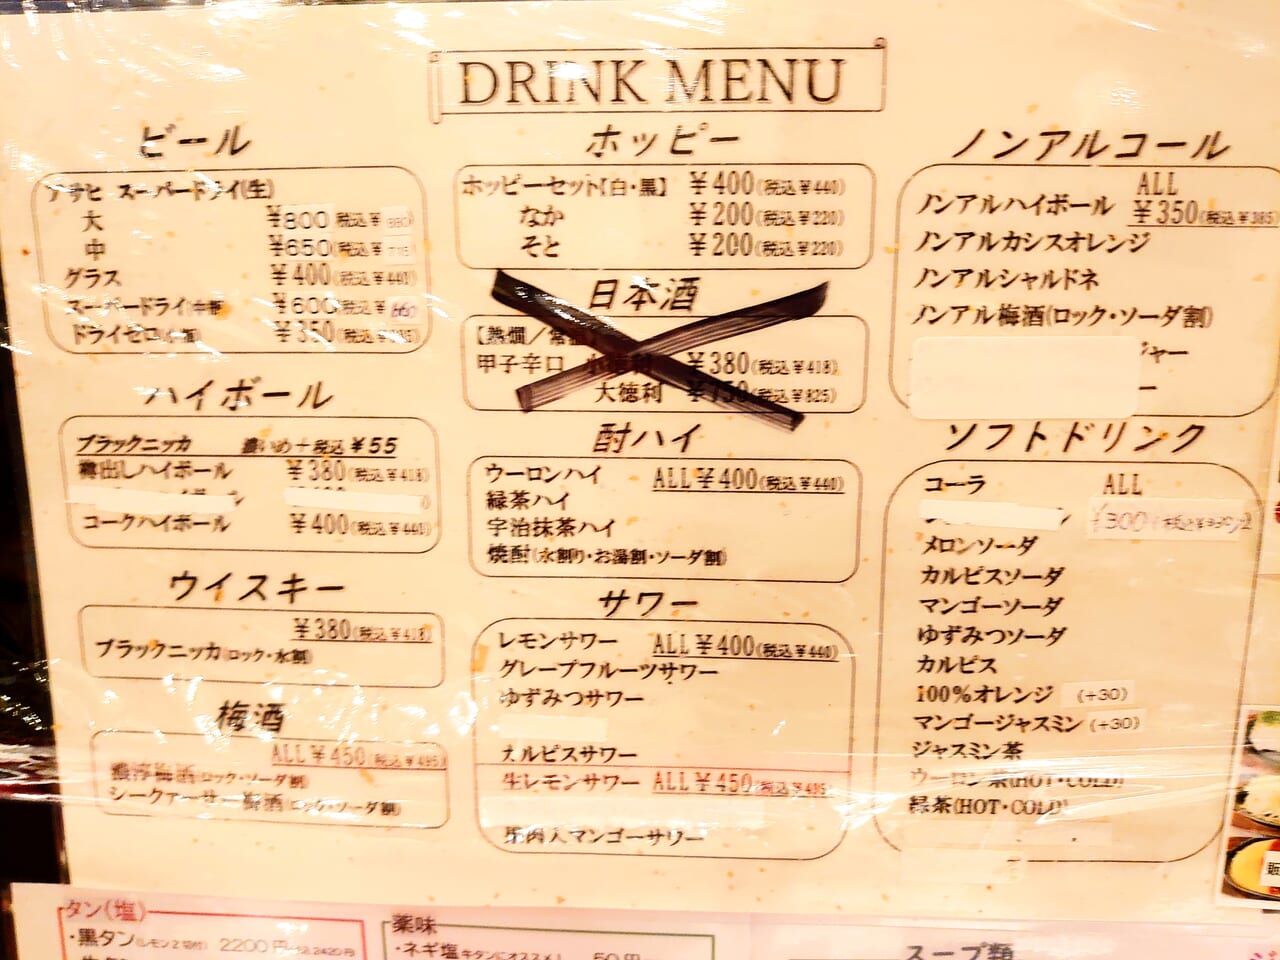 DRINK MENU
ビール
アサヒ スーパードライ(生)
大 ¥800(税込¥880)
中 ¥650(税込¥715)
グラス ¥400(税込¥440)
スーパードライ ¥600(税込¥660)
ドライゼロ ¥350(税込¥385)
ハイボール
ブラックニッカ 濃いめ+税込¥55
樽出しハイボール ¥380(税込¥418)
コークハイボール ¥400(税込¥440)
ウイスキー
¥380(税込¥418)
ブラックニッカ(ロック・水割)
梅酒
ALL¥450(税込¥495)
濃淳梅酒(ロック・ソーダ割)
シークァーサー梅酒(ロック・ソーダ割)
ホッピー
ホッピーセット【白・黒】 ¥400(税込¥440)
なか ¥200(税込¥220)
そと ¥200(税込¥220)
日本酒
【熱燗/常温
甲子辛口 小徳利 ¥380(税込¥418)
大徳利 ¥750(税込¥825)
酎ハイ
ウーロンハイ ALL¥400(税込¥440)
緑茶ハイ
宇治抹茶ハイ
焼酎(水割り・お湯割・ソーダ割)
サワー
レモンサワー ALL¥400(税込¥440)
グレープフルーツサワー
ゆずみつサワー
カルピスサワー
生レモンサワー ALL¥450(税込¥495)
果肉入マンゴーサワー
ノンアルコール
ALL
ノンアルハイボール ¥350(税込¥385)
ノンアルカシスオレンジ
ノンアルシャルドネ
ノンアル梅酒(ロック・ソーダ割)
ジャー
ー
ソフトドリンク
コーラ ALL
¥300(税込¥330)
メロンソーダ
カルピスソーダ
マンゴーソーダ
ゆずみつソーダ
カルピス
100%オレンジ (+30)
マンゴージャスミン(+30)
ジャスミン茶
ウーロン茶(HOT・COLD)
緑茶(HOT・COLD)
タン(塩)
・黒タン(レモン2切付) 2200円
薬味
・ネギ塩 牛タンにオススメ! 50円
スープ類